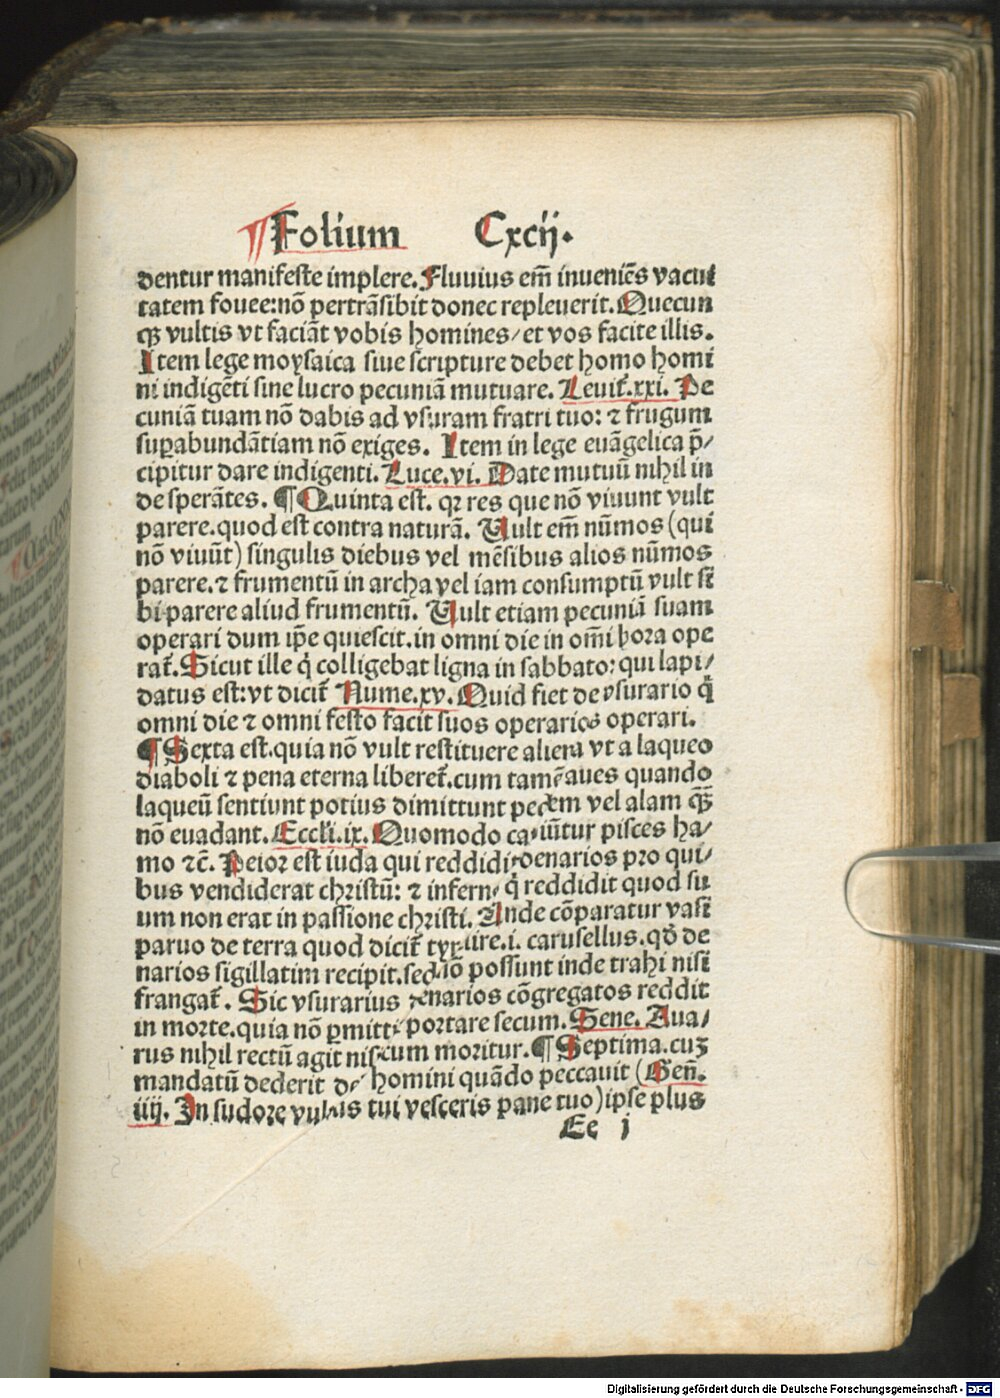 ¶Folium Cxcij.
dentur manifeste implere. Fluuius em̄ inueniēs vacui
tatem fouee: nō pertrāsibit donec repleuerit. Quecun
qꝫ vultis vt faciāt vobis homines/ et vos facite illis.
Item lege moysaica siue scripture debet homo homi
ni indigēti sine lucro pecuniā mutuare. Leuit̄.xxi. Pe
cuniā tuam nō dabis ad vsuram fratri tuo: ⁊ frugum
suꝑabundātiam nō exiges. Item in lege euāgelica p̄/
cipitur dare indigenti. Luce.vi. Date mutuū nihil in
de sperātes. ¶Quinta est. qꝛ res que nō viuunt vult
parere. quod est contra naturā. Vult em̄ nūmos (qui
nō viuūt) singulis diebus vel mēsibus alios nūmos
parere. ⁊ frumentū in archa vel iam consumptū vult si
bi parere aliud frumentū. Vult etiam pecuniā suam
operari dum ip̄e quiescit. in omni die in om̄i hora ope
rat̄. Sicut ille q̇ colligebat ligna in sabbato: qui lapi/
datus est: vt dicit̄ Nume.xv. Quid fiet de vsurario q̇
omni die ⁊ omni festo facit suos operarios operari.
¶Sexta est. quia nō vult restituere aliena vt a laqueo
diaboli ⁊ pena eterna liberet̄. cum tamē aues quando
laqueū sentiunt potius dimittunt pedem vel alam qꝫ̄
nō euadant. Eccli.ix. Quomodo capiūtur pisces ha/
mo ⁊c̄. Peior est iuda qui reddidit denarios pro qui/
bus vendiderat christū: ⁊ inferno q̇ reddidit quod su
um non erat in passione christi. Unde cōparatur vasi
paruo de terra quod dicit̄ .i. carusellus. qd̄ de
narios sigillatim recipit. sed nō possunt inde trahi nisi
frangat̄. Sic vsurarius denarios cōgregatos reddit
in morte. quia nō ꝑmittit portare secum. Sene. Aua/
rus nihil rectū agit nisi cum moritur. ¶Septima. cuꝫ
mandatū dederit deꝰ homini quādo peccauit (Gen̄.
iiij. In sudore vultus tui vesceris pane tuo) ipse plus
Ee j
Digitalisierung gefördert durch die Deutsche Forschungsgemeinschaft - DFG